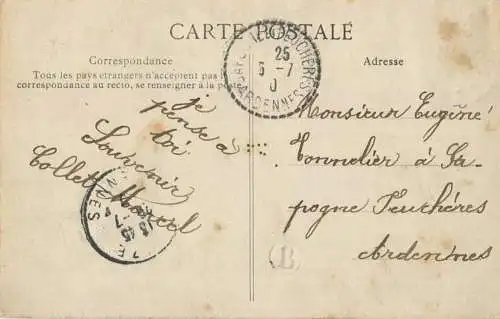 CARTE POSTALE
Correspondance
Tous les pays étrangers n'acceptent pas la
correspondance au recto, se renseigner à la poste
Adresse
25
5 - 7
ARDENNES
je
pense à
toi
Souvenir
Collet Marcel
Monsieur Eugène
Tonnelier à Sa-
pogne Feuchères
Ardennes
B